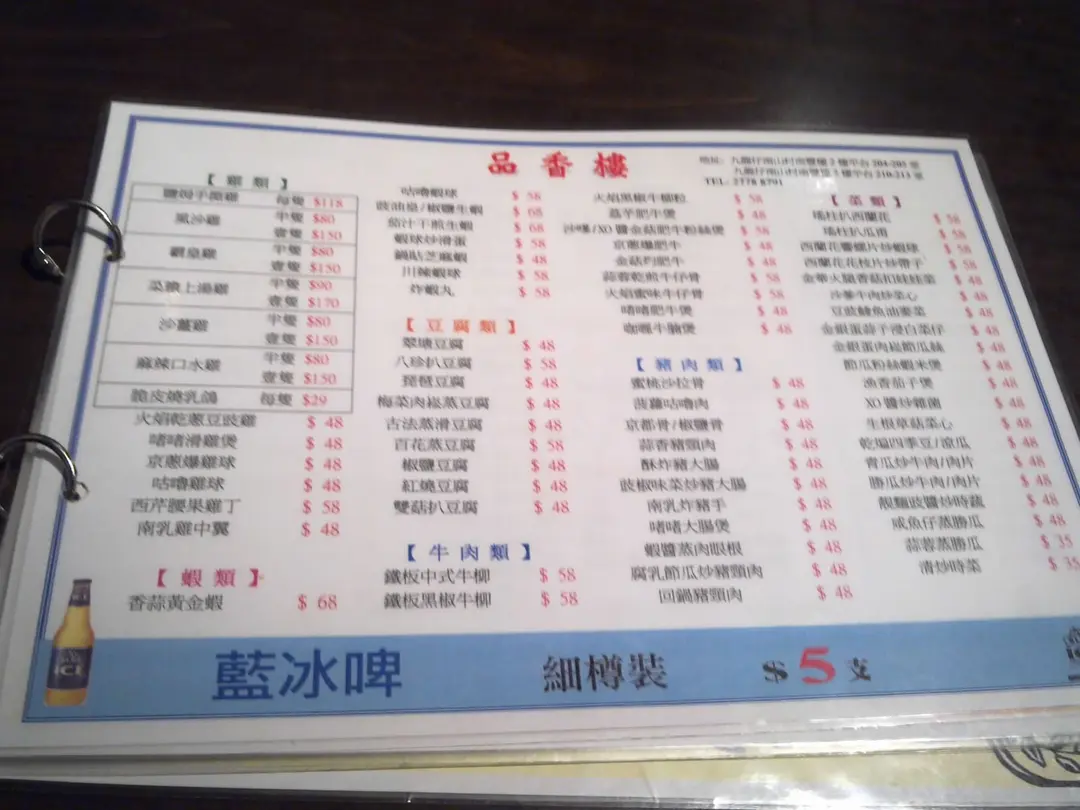 品香樓
TEL: 2778 8791
【雞類】
鹽焗手撕雞 每隻 $118
風沙雞 半隻 $80
壹隻 $150
霸皇雞 半隻 $80
壹隻 $150
菜膽上湯雞 半隻 $90
壹隻 $170
沙薑雞 半隻 $80
壹隻 $150
麻辣口水雞 半隻 $80
壹隻 $150
脆皮燒乳鴿 每隻 $29
火焰乾蔥豆豉雞 $ 48
啫啫滑雞煲 $ 48
京蔥爆雞球 $ 48
咕嚕雞球 $ 48
西芹腰果雞丁 $ 58
南乳雞中翼 $ 48
【蝦類】
香蒜黃金蝦 $ 68
咕嚕蝦球 $ 58
豉油皇/椒鹽生蝦 $ 68
茄汁干煎生蝦 $ 68
蝦球炒滑蛋 $ 58
鍋貼芝麻蝦 $ 48
川辣蝦球 $ 58
炸蝦丸 $ 58
【豆腐類】
翠塘豆腐 $ 48
八珍扒豆腐 $ 58
琵琶豆腐 $ 48
梅菜肉崧蒸豆腐 $ 48
古法蒸滑豆腐 $ 48
百花蒸豆腐 $ 58
椒鹽豆腐 $ 48
紅燒豆腐 $ 48
雙菇扒豆腐 $ 48
【牛肉類】
鐵板中式牛柳 $ 58
鐵板黑椒牛柳 $ 58
火焰黑椒牛柳粒 $ 58
荔芋肥牛煲 $ 48
沙嗲/XO醬金菇肥牛粉絲煲 $ 58
京蔥爆肥牛 $ 48
金菇肥牛 $ 48
蒜蓉乾煎牛仔骨 $ 58
火焰蜜味牛仔骨 $ 58
啫啫肥牛煲 $ 48
咖喱牛腩煲 $ 48
【豬肉類】
蜜桃沙拉骨 $ 48
菠蘿咕嚕肉 $ 48
京都骨/椒鹽骨 $ 48
蒜香豬頸肉 $ 48
酥炸豬大腸 $ 48
豉椒味菜炒豬大腸 $ 48
南乳炸豬手 $ 48
啫啫大腸煲 $ 48
蝦醬蒸肉眼根 $ 48
腐乳節瓜炒豬頸肉 $ 48
回鍋豬頸肉 $ 48
【菜類】
瑤柱扒西蘭花 $ 58
瑤柱扒瓜甫 $ 58
西蘭花響螺片炒蝦球 $ 58
西蘭花花枝片炒帶子 $ 58
金華火腿香菇扣娃娃菜 $ 48
沙爹牛肉炒菜心 $ 48
豆豉鯪魚油麥菜 $ 48
金銀蛋蒜子浸白菜仔 $ 48
金銀蛋肉崧節瓜絲 $ 48
節瓜粉絲蝦米煲 $ 48
漁香茄子煲 $ 48
XO醬炒雜菌 $ 48
生根草菇菜心 $ 48
乾煸四季豆/涼瓜 $ 48
青瓜炒牛肉/肉片 $ 48
勝瓜炒牛肉/肉片 $ 48
靚麵豉醬炒時蔬 $ 48
咸魚仔蒸勝瓜 $ 48
蒜蓉蒸勝瓜 $ 35
清炒時菜 $ 35
藍冰啤 細樽裝 $5支
ICE